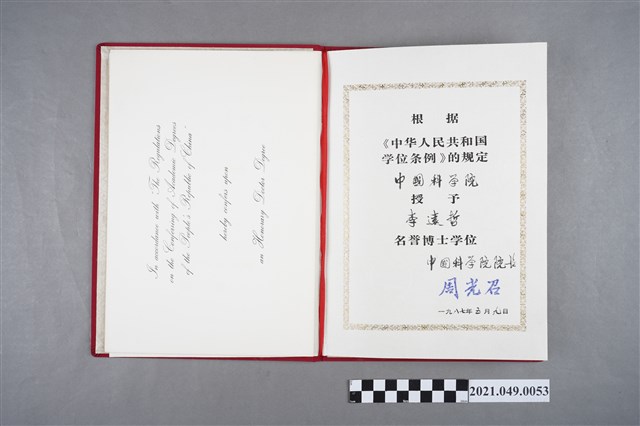 In accordance with "The Regulations
on the Conferring of Academic Degrees
of the People's Republic of China"
hereby confers upon
an Honorary Doctor Degree
根 据
《中华人民共和国
学位条例》的规定
中國科学院
授 予
李遠哲
名誉博士学位
中国科学院院长
周光召
一九八七年五月九日
2021.049.0053